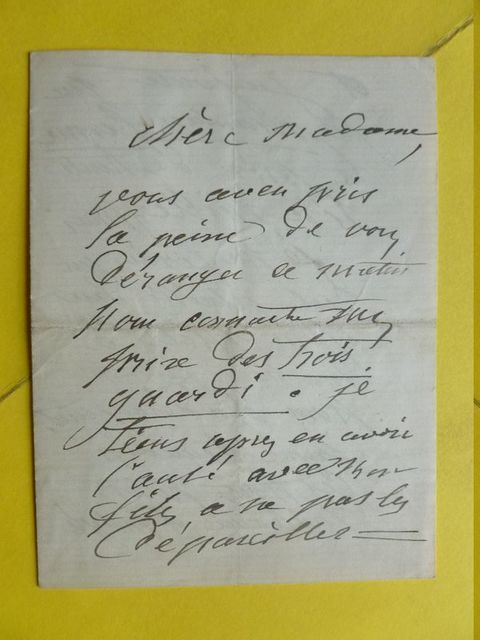 chère Madame,
vous avez pris
la peine de vous
déranger ce matin
pour connaitre mon
prix des trois
guardi. je
tiens apres en avoir
causé avec mon
fils a ne pas les
dépareiller